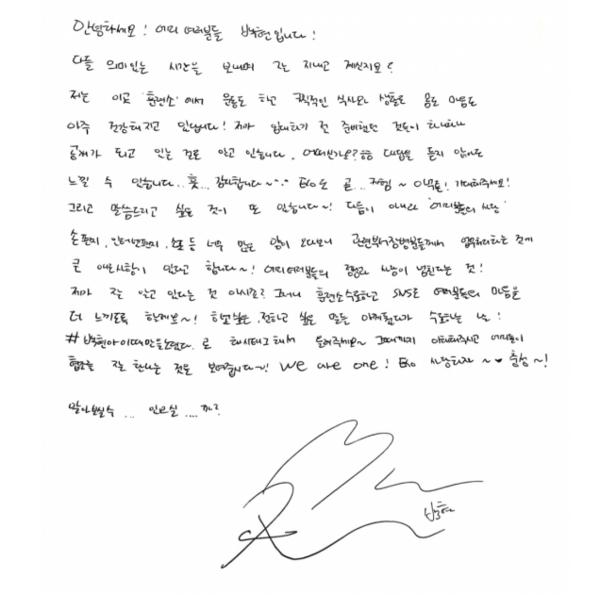 안녕하세요! 에리 여러분들 백현입니다!
다들 의미있는 시간을 보내며 잘 지내고 계신지요?
저는 이곳 '훈련소'에서 운동도 하고 규칙적인 식사와 생활로 몸도 마음도
아주 건강해지고 있답니다! 제가 입대하기 전 준비했던 것들이 하나하나
공개가 되고 있는 걸로 알고 있습니다. 어떠신가요? 흠흠 대답을 듣지 않아도
느낄 수 있습니다.. 훗... 감사합니다~^^ Exo도 곧... 커험~ 아무튼! 기대해주세요!
그리고 말씀드리고 싶은 것이 또 있습니다~! 다름이 아니라 '여러분들의 사랑'
손편지, 인터넷편지, 소포 등 너무 많은 양이 오다보니 관련부서장병분들께서 업무처리하는 것에
큰 애로사항이 있다고 합니다~! 에리여러분들의 열정과 사랑이 넘친다는 것!
제가 잘 알고 있다는 것 아시죠? 그러니 훈련소 수료하고 SNS로 여러분들의 마음을
더 느끼도록 할게요~! 하고싶은, 전하고 싶은 말들 아껴뒀다가 수료하는 날!
#백현아이때만을노렸다. 로 해시태그해서 들려주세요~ 그때까지 이해해주시고 여러분이
협조를 잘 한다는 것을 보여줍시다~! We are one! Exo 사랑하자~♥ 충성~!
말아보실수... 있으실....까?
백현